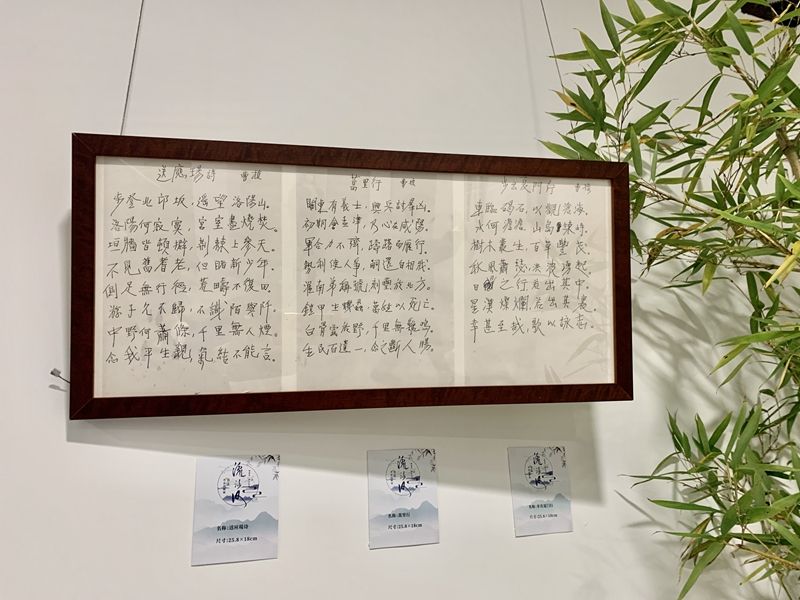 送應瑒詩 曹植
步登北邙坂,遥望洛陽山。
洛陽何寂寞,宮室盡燒焚。
垣牆皆頓擗,荆棘上參天。
不見舊耆老,但睹新少年。
側足無行徑,荒疇不復田。
游子久不歸,不識陌與阡。
中野何蕭條,千里無人煙。
念我平生親,氣結不能言。
蒿里行 曹操
關東有義士,興兵討群凶。
初期會孟津,乃心在咸陽。
軍合力不齊,躊躇而雁行。
勢利使人爭,嗣還自相戕。
淮南弟稱號,刻璽於北方。
鎧甲生蟣蝨,萬姓以死亡。
白骨露於野,千里無雞鳴。
生民百遺一,念之斷人腸。
步出夏門行 曹操
東臨碣石,以觀滄海。
水何澹澹,山島竦峙。
樹木叢生,百草豐茂。
秋風蕭瑟,洪波湧起。
日月之行,若出其中。
星漢燦爛,若出其裏。
幸甚至哉,歌以詠志。
名称:送应瑒诗
尺寸:25.8×18cm
名称:蒿里行
尺寸:25.8×18cm
尺寸:25.8×18cm